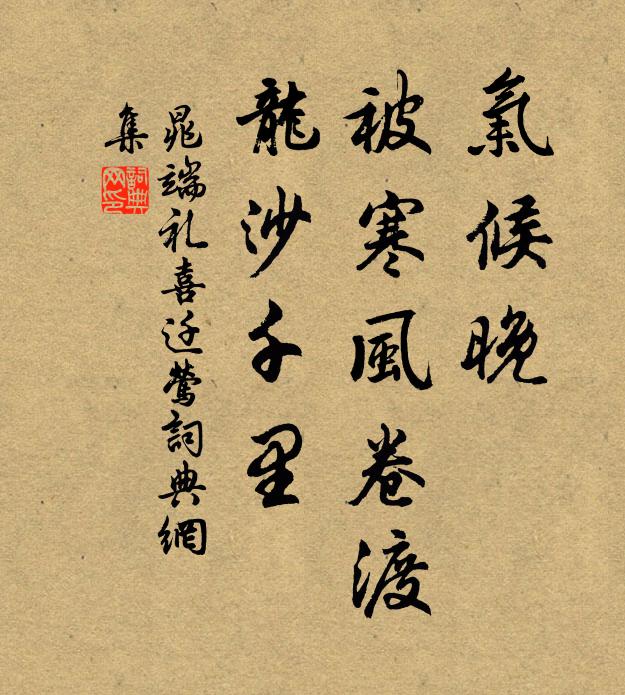 氣候晚
被寒風卷渡
龍沙千里
晁端礼喜迁鶯詞典網
集
詞典
网印